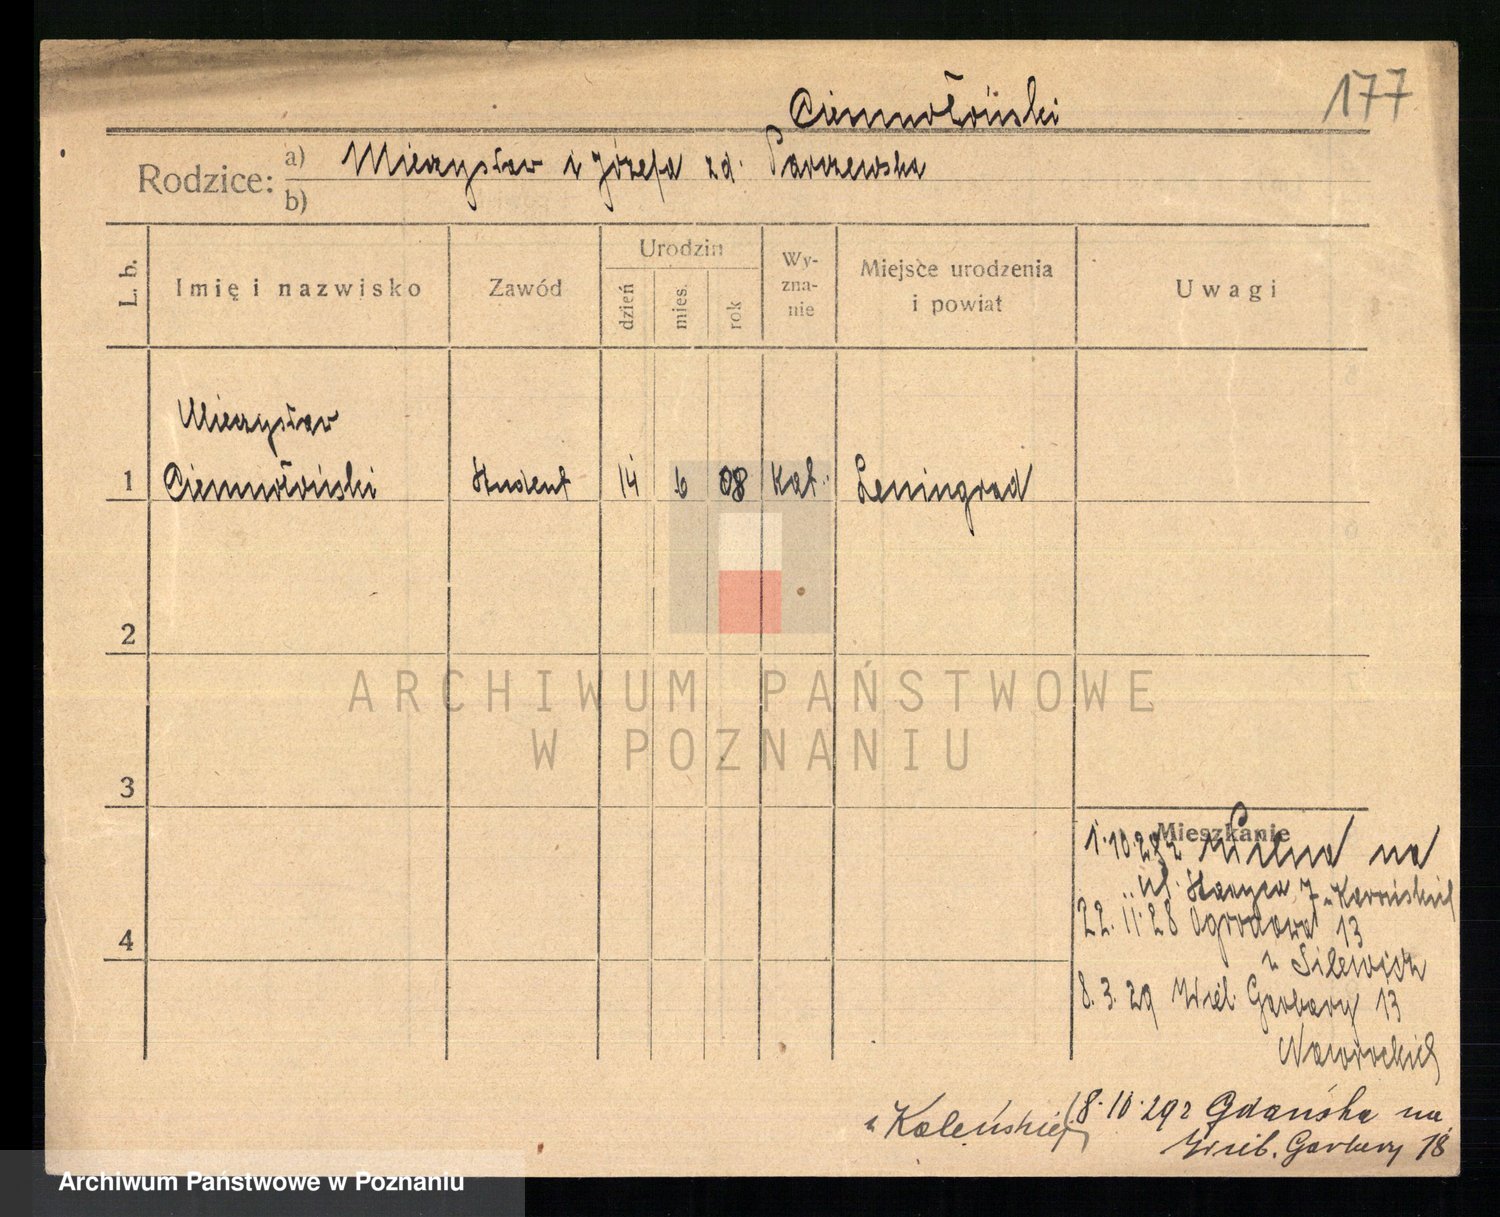 177
Ciemnołoński
Rodzice: a) Mieczysław i Józefa zd. Parczewska
b)
L. b.
Imię i nazwisko
Zawód
Urodzin
dzień
mies.
rok
Wy-
zna-
nie
Miejsce urodzenia
i powiat
Uwagi
Mieczysław
1 Ciemnołoński Student 14 6 08 Kat. Leningrad
2
ARCHIWUM PAŃSTWOWE
W POZNANIU
3
Mieszkanie
1.10.28 z Wilna na
ul. 7 u
4
22.11.28 Ogrodowa 13
u
8.3.29 Wiel. Garbary 13
Nawrockich
8.10.29 z Gdańska na
u Koleńskiej
Wielk. Garbary 18
Archiwum Państwowe w Poznaniu